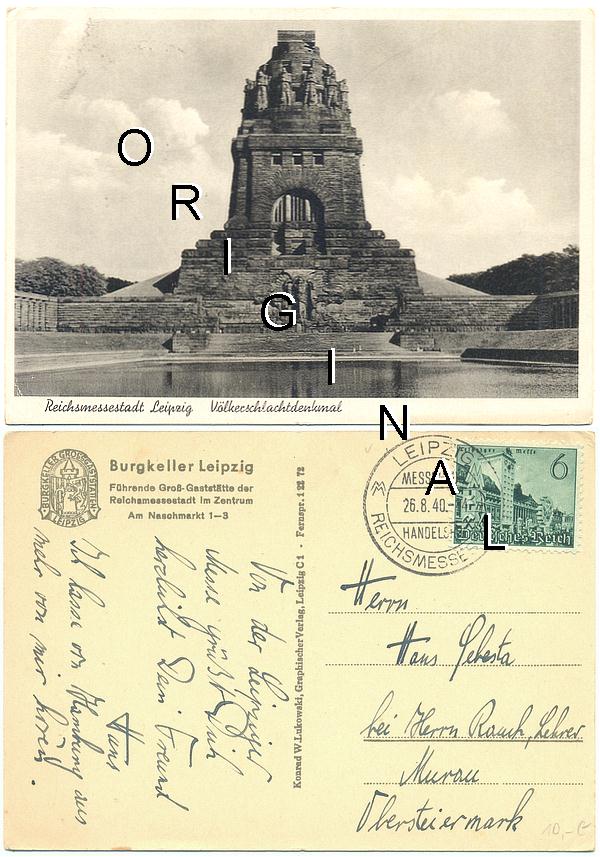 ORIGINAL
Reichsmessestadt Leipzig Völkerschlachtdenkmal
BURGKELLER GROSSGASTSTÄTTEN
LEIPZIG
Burgkeller Leipzig
Führende Groß-Gaststätte der
Reichsmessestadt im Zentrum
Am Naschmarkt 1-3
LEIPZIG
MESSE
26.8.40
HANDELS
REICHSMESSE
6
Deutsches Reich
Konrad W. Lukowski, Graphischer Verlag, Leipzig C 1 · Fernspr. 1 22 72
Von der Leipziger
Messe grüßt Dich
herzlichst Dein Freund
Hans
Ich lasse von Hamburg aus
mehr von mir hören.
Herrn
Hans Sebesta
bei Herrn Rauch, Lehrer
Murau
Obersteiermark
10,- €